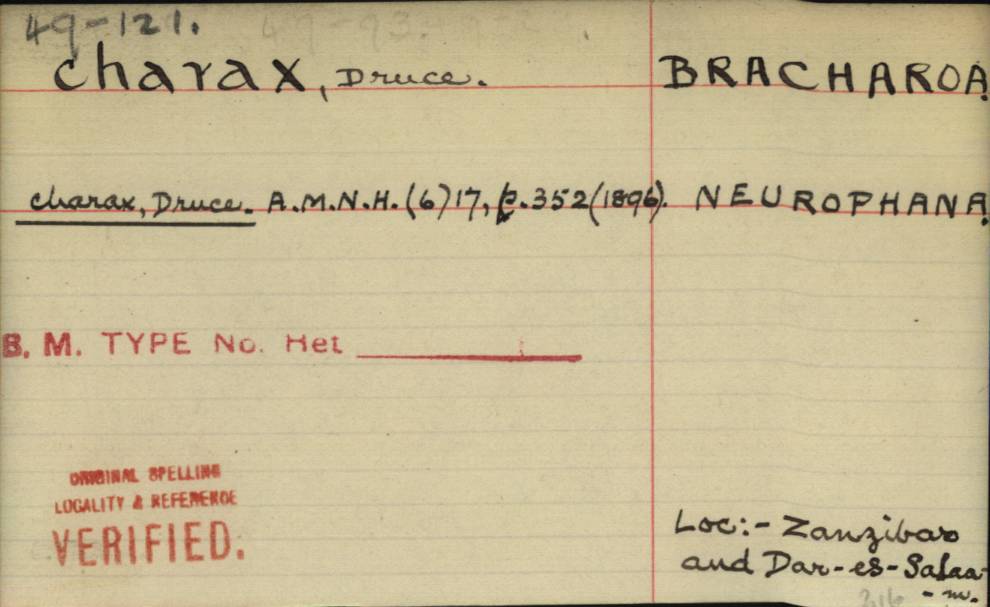 49-121.
charax, Druce. BRACHAROA.
charax, Druce. A.M.N.H. (6)17, p.352 (1896). NEUROPHANA.
B. M. TYPE No. Het
ORIGINAL SPELLING
LOCALITY & REFERENCE
VERIFIED.
Loc:- Zanzibar
and Dar-es-Salaa-
-m.
316